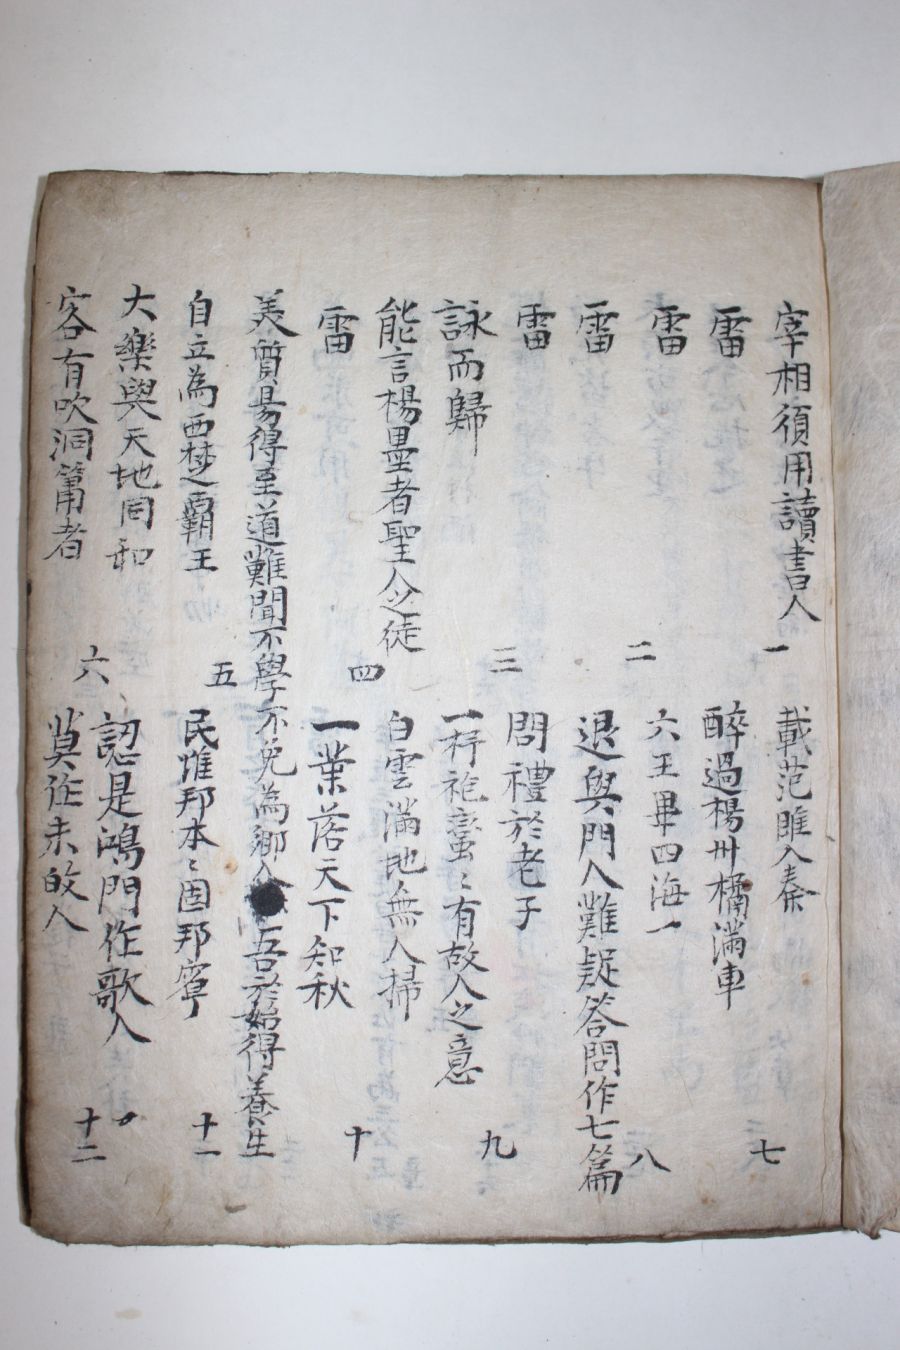 宰相須用讀書人
一
雷
雷
二
雷
雷
三
詠而歸
能言楊墨者聖人之徒
雷
四
美質易得至道難聞不學不免為鄉人
自立為西楚霸王
五
大樂與天地同和
六
客有吹洞簫者
載范雎入秦
七
醉過楊州橘滿車
六王畢四海一
八
退與門人難疑答問作七篇
問禮於老子
九
袍戀々有故人之意
白雲滿地無人掃
十
一業落天下知秋
吾於 得養生
民惟邦本々固邦寧
十一
認是鴻門作歌人
十二
莫 未 人